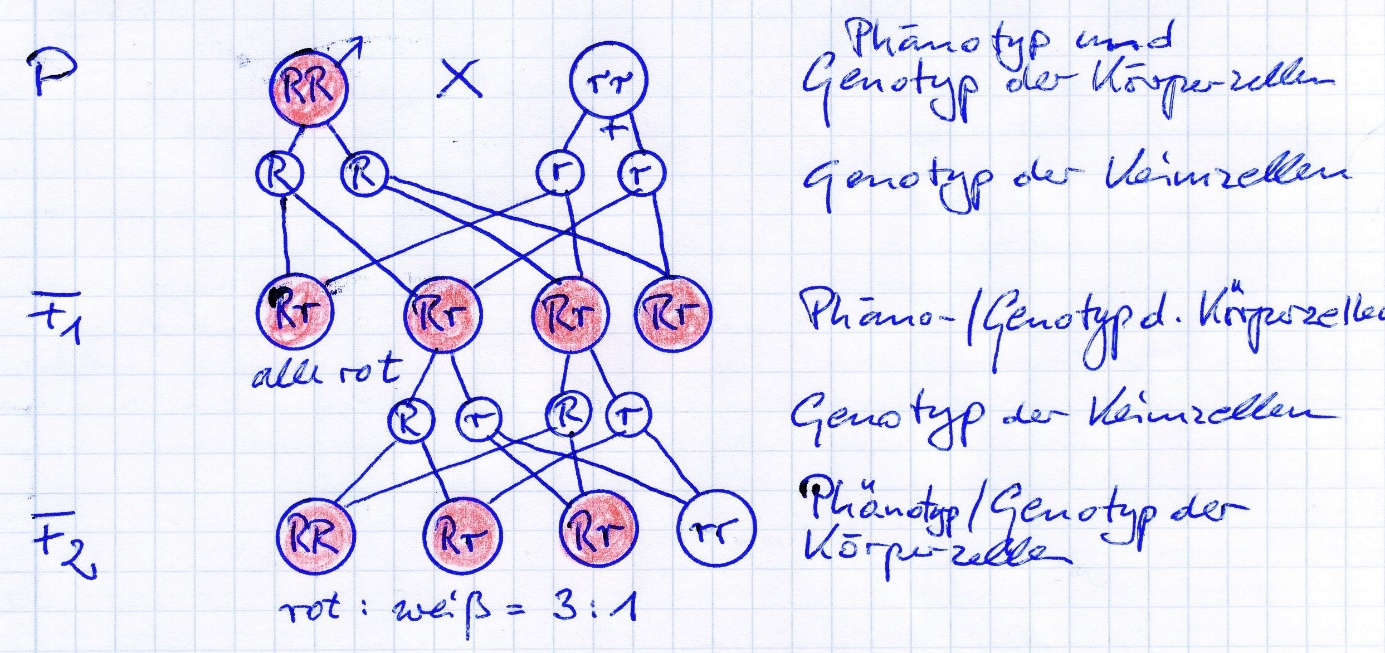 P RR X rr Phänotyp und
Genotyp der Körperzellen
R R r r Genotyp der Keimzellen
F1 Rr Rr Rr Rr Phäno-/Genotyp d. Körperzellen
alle rot
R r R r Genotyp der Keimzellen
F2 RR Rr Rr rr Phänotyp/Genotyp der
Körperzellen
rot : weiß = 3 : 1